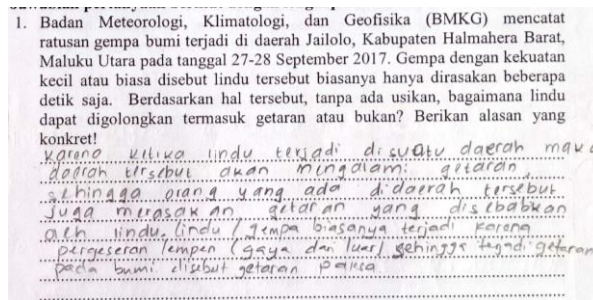 1. Badan Meteorologi, Klimatologi, dan Geofisika (BMKG) mencatat
ratusan gempa bumi terjadi di daerah Jailolo, Kabupaten Halmahera Barat,
Maluku Utara pada tanggal 27-28 September 2017. Gempa dengan kekuatan
kecil atau biasa disebut lindu tersebut biasanya hanya dirasakan beberapa
detik saja. Berdasarkan hal tersebut, tanpa ada usikan, bagaimana lindu
dapat digolongkan termasuk getaran atau bukan? Berikan alasan yang
konkret!
karena ketika lindu terjadi disuatu daerah maka
daerah tersebut akan mengalami getaran,
sehingga orang yang ada didaerah tersebut
juga merasakan getaran yang disebabkan
oleh lindu. Lindu / gempa biasanya terjadi karena
pergeseran lempen (gaya dari luar) sehingga terjadi getaran
pada bumi disebut getaran paksa